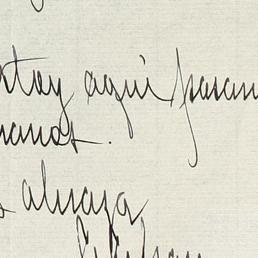 stoy aquí pasan
manas.
s abraza